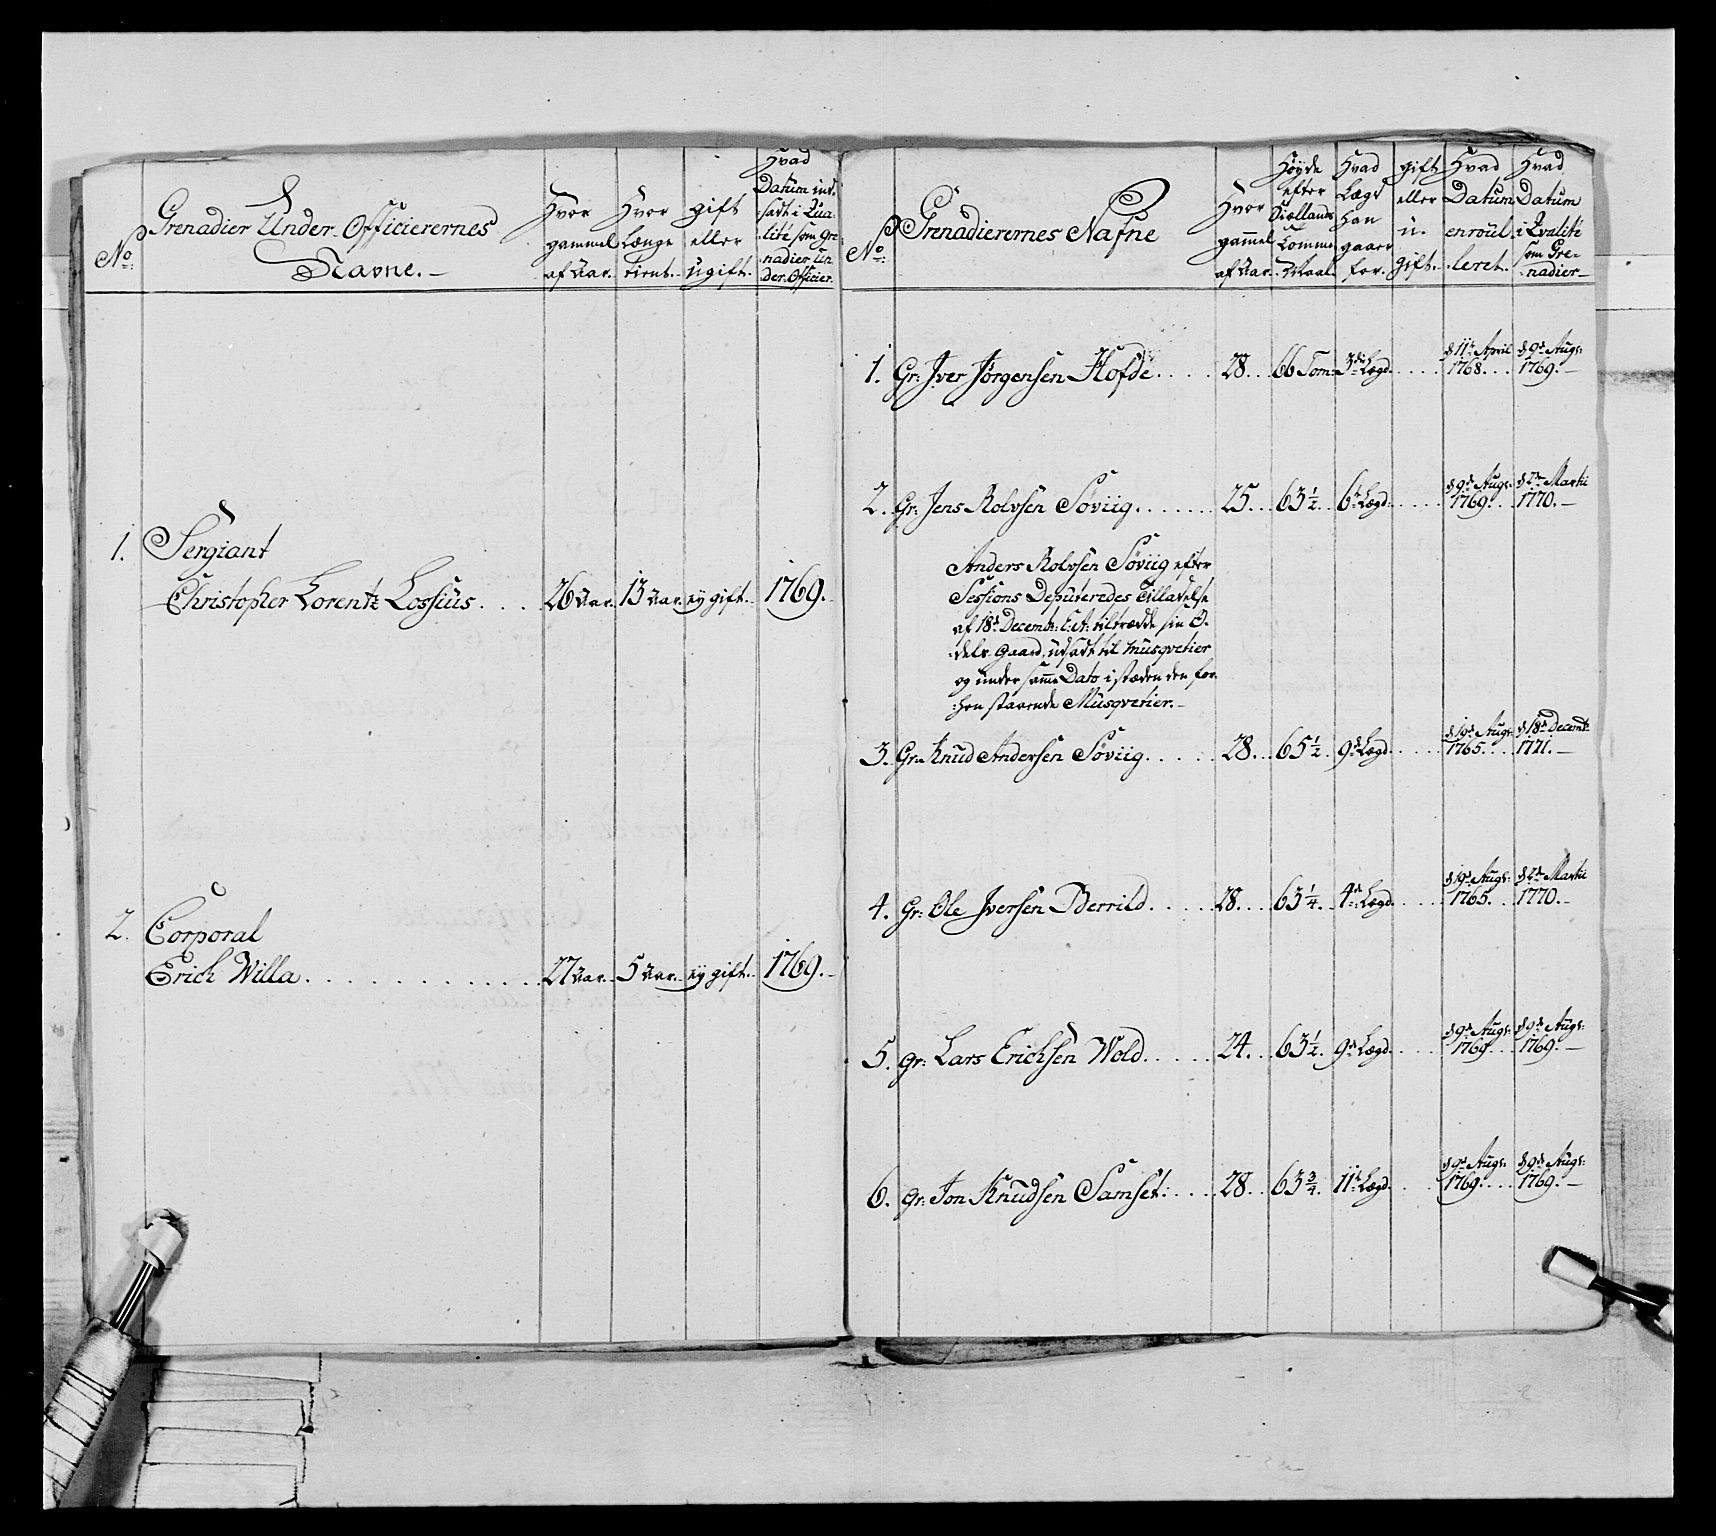 No
Grenadier Under-Officierernes
Navne.
Hvor
gammel
af Aar.
Hvor
Længe
tient.
gift
eller
ugift.
Hvad
Datum ind-
sadt i Qua-
lité som Gre-
nadier Un-
der-Officier.
1. Sergiant
Christopher Lorentz Lossius. 26 Aar. 13 Aar. ey gift. 1769.
2. Corporal
Erich Willa. 27 Aar. 5 Aar. ey gift. 1769.
No
Grenadierernes Nafne
Hvor
gammel
af Aar.
Høyde
efter
Siællands
Tomme
Maal.
Hvad
Lægd
han
gaaer
for.
gift
eller
u-
gift.
Hvad
Datum
enroul-
leret.
Hvad
Datum
i Qvalité
som Gre-
nadier
1. Gr: Iver Jørgensen Hofde. 28. 66 Tom: 3de Lægd. d 11te April 1768. d 9de Augs: 1769.
2. Gr: Jens Rolvsen Søviig. 25. 63 1/2. 6te Lægd. d 9de Augs: 1769. d 2den Martii 1770.
Anders Rolvsen Søviig efter
Sessions Deputeredes Tilladelse
af 18de Decembr: t: A: tiltrædde sin O-
dels-Gaard, udsadt til Musqvetier
og under samme Dato i stæden den for-
hen staaende Musqvetier.
3. Gr: Knud Andersen Søviig. 28. 65 1/2. 9de Lægd. d 19de Augs: 1765. d 18de Decembr: 1771.
4. Gr: Ole Iversen Berrild. 28. 63 1/4. 4de Lægd. d 19de Augs: 1765. d 2den Martii 1770.
5. Gr: Lars Erichsen Wold. 24. 63 1/2. 9de Lægd. d 9de Augs: 1769. d 9de Augs: 1769.
6. Gr: Jon Knudsen Samset. 28. 63 3/4. 11te Lægd. d 9de Augs: 1769. d 9de Augs: 1769.